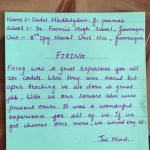 Name :- Cadet
School :- St. Francis High School, Jamnagar
Unit :- 8th Guj Naval Unit Ncc, Jamnagar
FIRING
Firing was a great experience for all
the cadets. Guns they were tired but
after teaching us we done a great
job. With us our seniors also were
present there. It was a wonderful
experience for all of us. If we
get chances once more, we would try it.
Jai Hind.